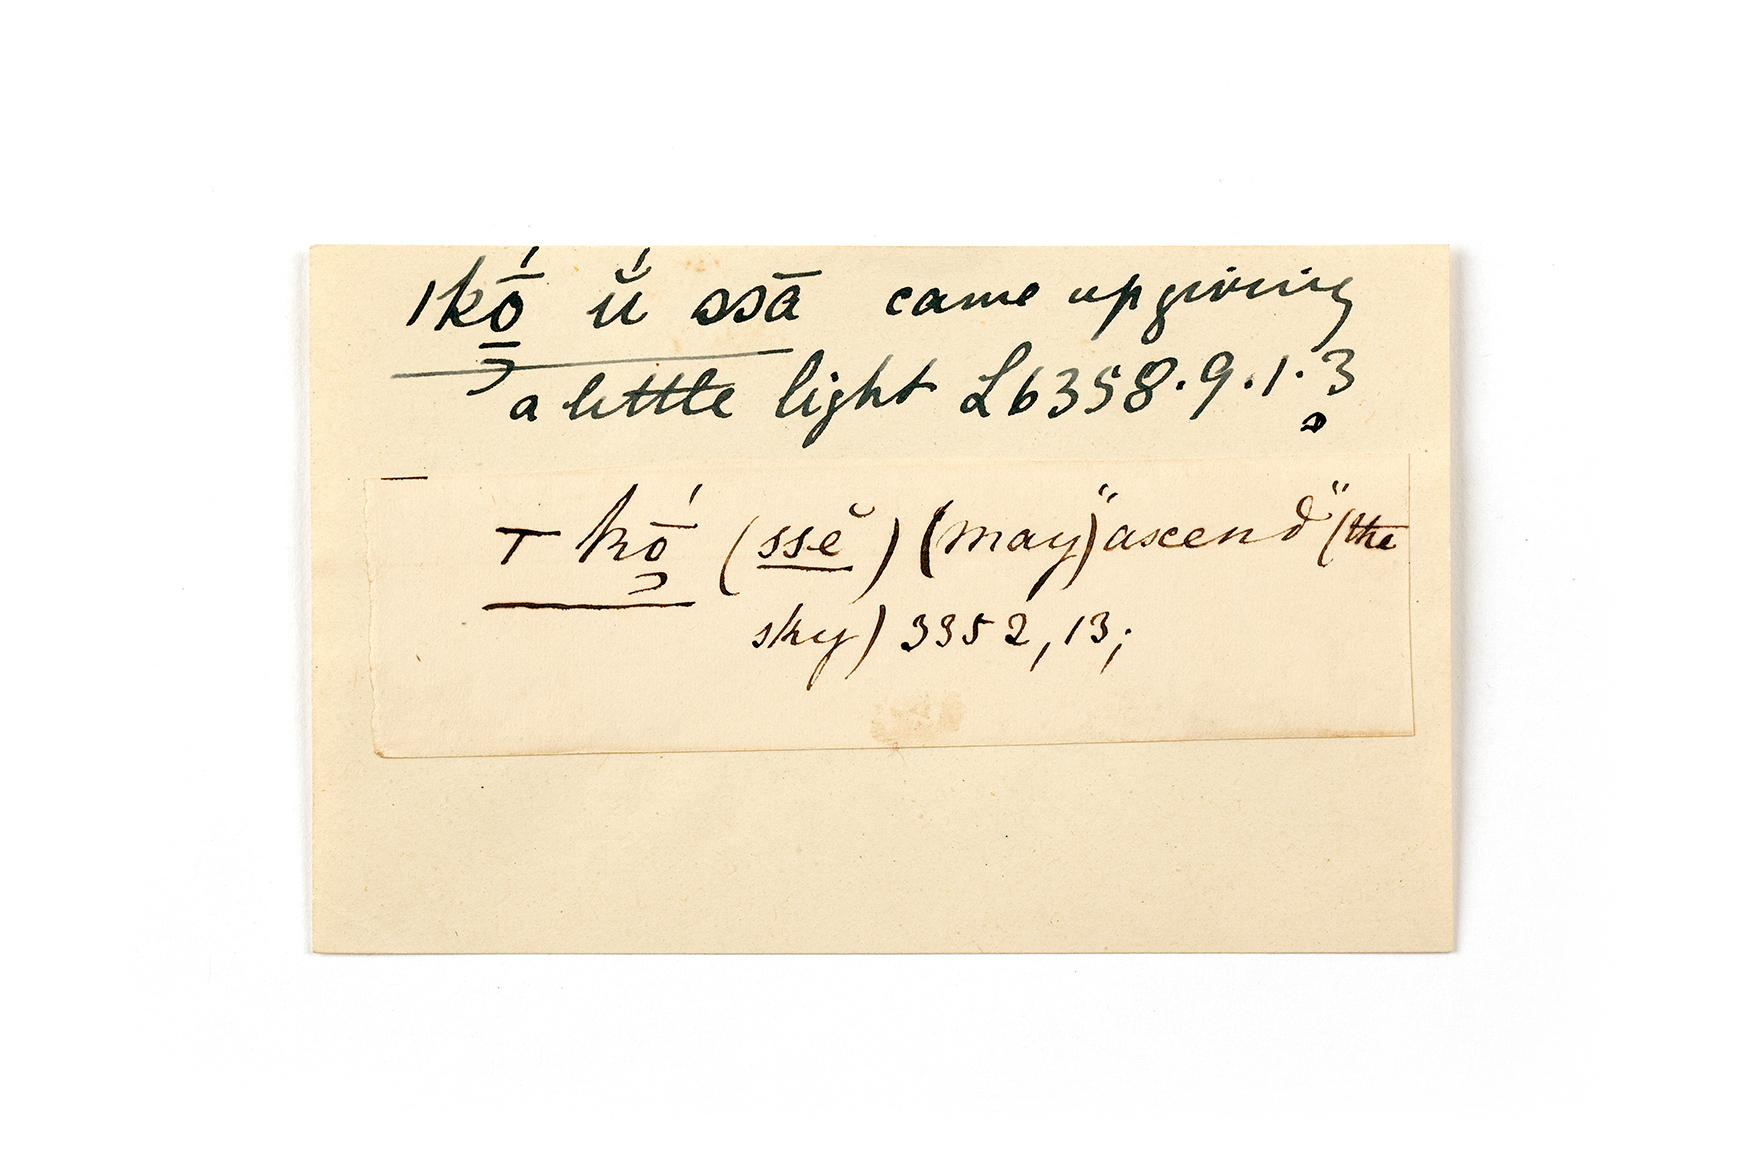 |kṓ ŭ́ ssā came up giving
a little light L6358.9.1.3
⊤ kṓ (ssĕ) (may) "ascend" (the
sky) 3352, 13;